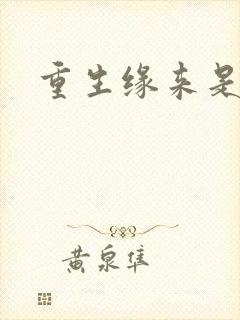 重生缘来是
黄泉隼